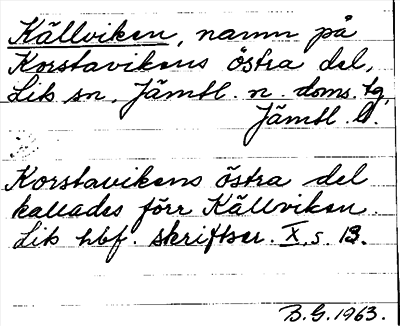 Källviken, namn på
Korstavikens östra del,
Lits sn. Jämtl. n. doms. tg,
Jämtl. l.
Korstavikens östra del
kallades förr Källviken.
Lits hbf. skriftser. X, s. 13.
B.G. 1963.